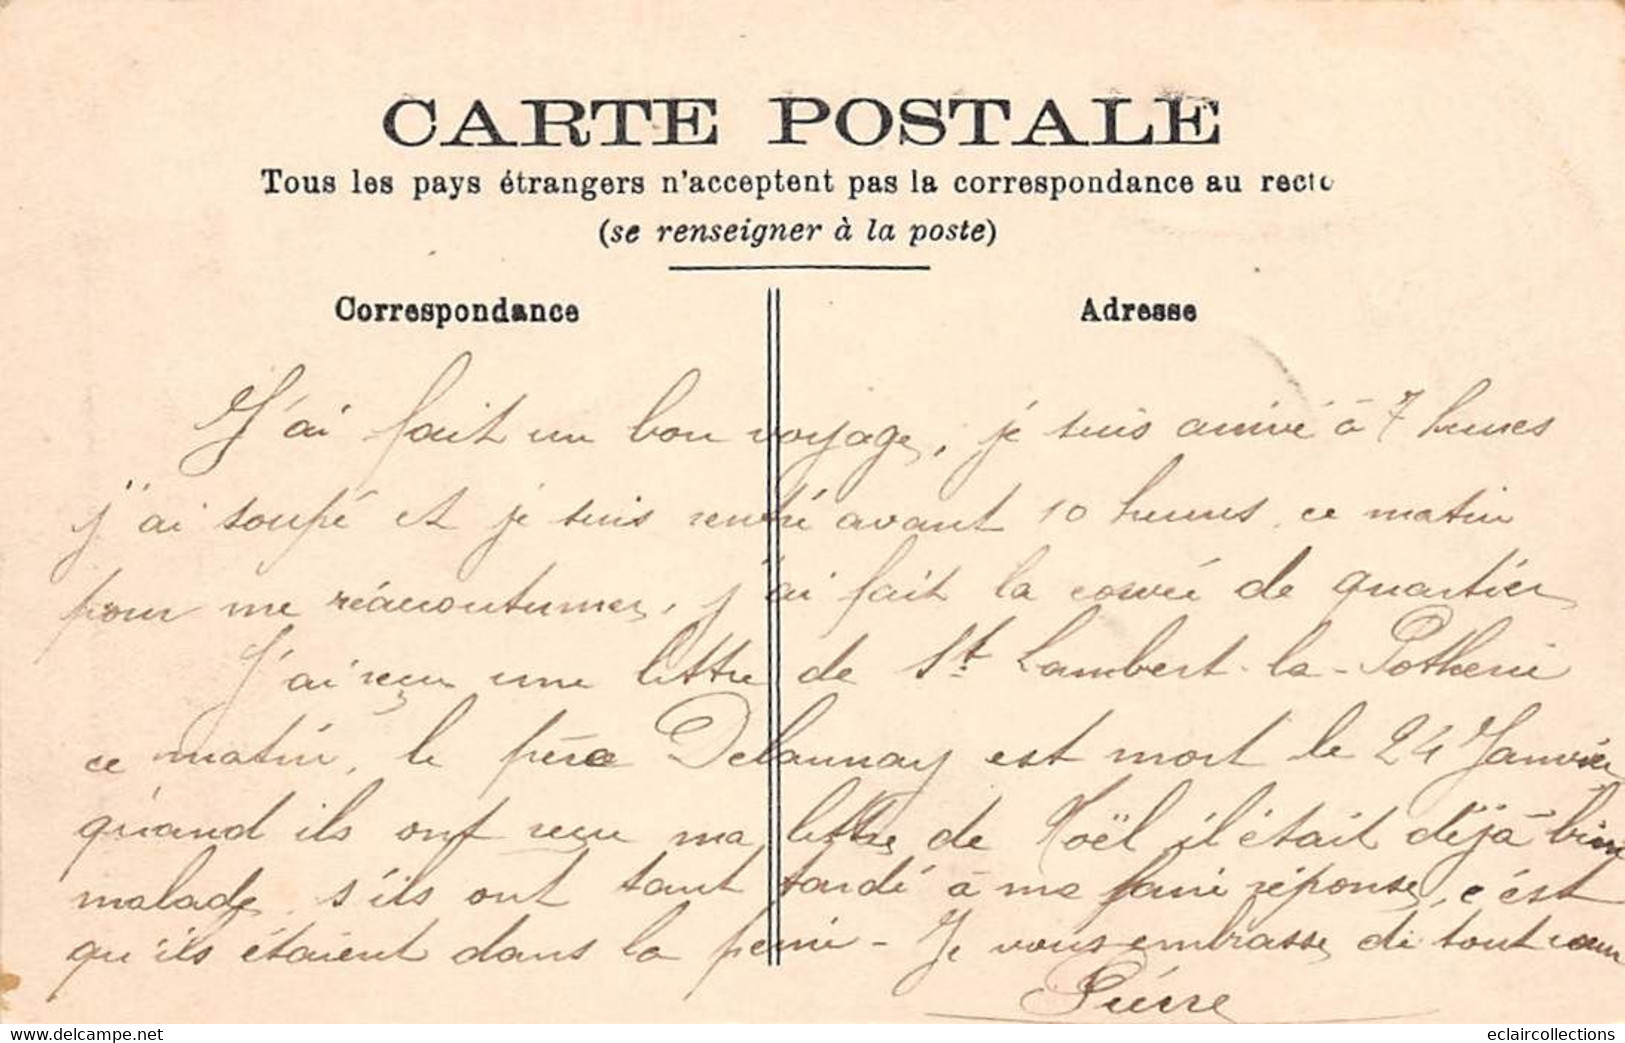 CARTE POSTALE
Tous les pays étrangers n'acceptent pas la correspondance au recto
(se renseigner à la poste)
Correspondance
Adresse
J'ai fait un bon voyage, je suis arrivé à 7 heures
j'ai soupé et je suis rentré avant 10 heures, ce matin
pour me réaccoutumer, j'ai fait la corvée de quartier
J'ai reçu une lettre de St Lambert-la-Potherie
ce matin, le père Delaunay est mort le 24 Janvier
quand ils ont reçu ma lettre de Noël il était déjà bien
malade, s'ils ont tant tardé à me faire réponse, c'est
qu'ils étaient dans la peine - Je vous embrasse de tout cœur
Pierre
www.delcampe.net
eclaircollections